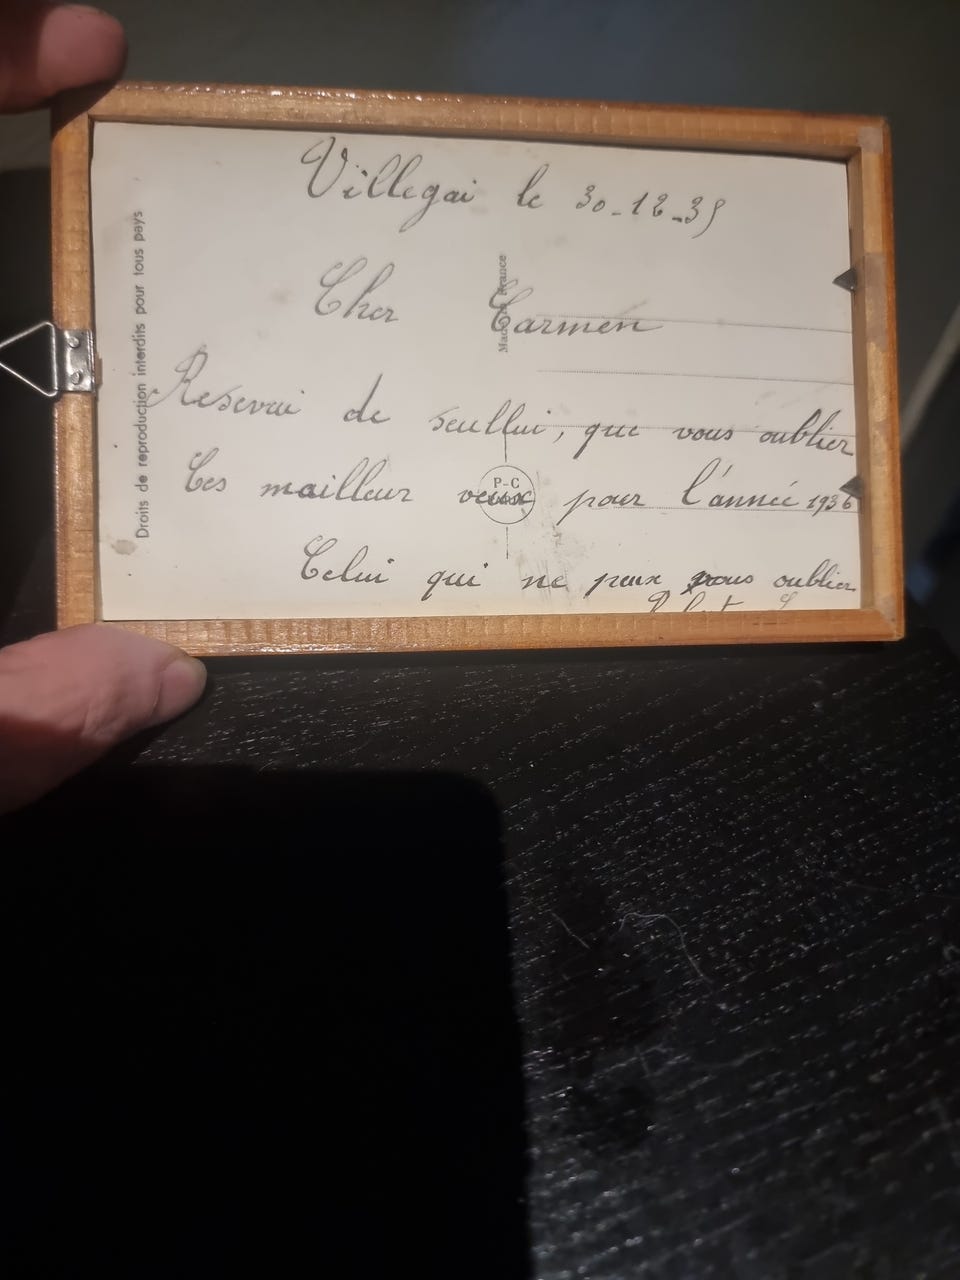 Villegai le 30-12-35
Cher Carmen
Reservai de seullui, que vous oublier
Ces mailleur veux pour l'année 1936
Celui qui ne peux vous oublier
Droits de reproduction interdits pour tous pays
Made in France
P-C
PARIS